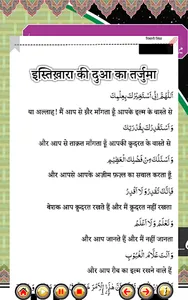 इस्तिख़ारा की दुआ का तर्जुमा
اَللّٰهُمَّ اِنِّىْ اَسْتَخِيْرُكَ بِعِلْمِكَ
या अल्लाह! मैं आप से ख़ैर माँगता हूँ आपके इल्म के वास्ते से
وَاَسْتَقْدِرُكَ بِقُدْرَتِكَ
और आप से ताक़त माँगता हूँ आपकी क़ुदरत के वास्ते से
وَاَسْئَلُكَ مِنْ فَضْلِكَ الْعَظِيْمِ
और आपसे आपके अज़ीम फ़ज़्ल का सवाल करता हूँ
فَاِنَّكَ تَقْدِرُ وَلَا اَقْدِرُ
बेशक आप क़ुदरत रखते हैं और मैं क़ुदरत नहीं रखता
وَتَعْلَمُ وَلَا اَعْلَمُ
और आप जानते हैं और मैं नहीं जानता
وَاَنْتَ عَلَّامُ الْغُيُوْبِ
और आप ग़ैब का इल्म रखने वाले हैं